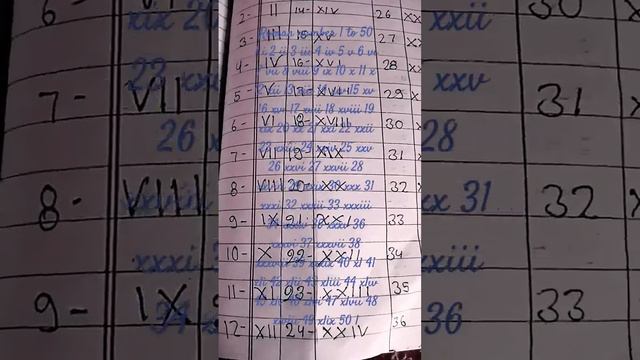 2- II 14- XIV 26 XX
3- III 15- XV 27 XX
4- IV 16- XVI 28
5- V 17- XVII 29
6- VI 18- XVIII 30
7- VII 19- XIX 31
8- VIII 20- XX 32
9- IX 21- XXI 33
10- X 22- XXII 34
11- XI 23- XXIII 35
12- XII 24- XXIV 36
Roman number 1 to 50
ii 3 iii 4 iv 5 v 6 vi
vii 8 viii 9 ix 10 x 11 x
xiii 14 xiv 15 xv
16 xvi 17 xvii 18 xviii 19
xix 20 xx 21 xxi 22 xxii
23 xxiii 24 xxiv 25 xxv
26 xxvi 27 xxvii 28
xxix 30 xxx 31
xxxi 32 xxxii 33 xxxiii
34 xxxiv 35 xxxv 36
xxxvi 37 xxxvii 38
xxxviii 39 xxxix 40 xl 41
xli 42 xlii 43 xliii 44 xliv
45 xlv 46 xlvi 47 xlvii 48
xlviii 49 xlix 50 l
7- VII
8- VIII
9- IX
31
32
33